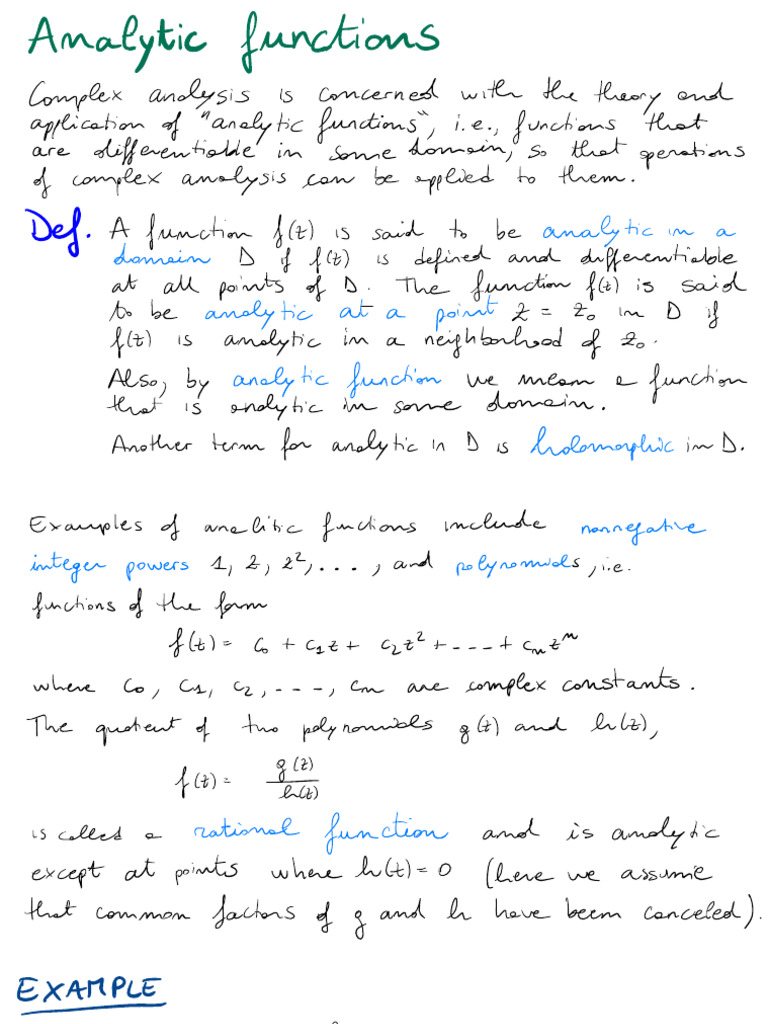 Analytic functions
Complex analysis is concerned with the theory and
application of "analytic functions", i.e., functions that
are differentiable in some domain, so that operations
of complex analysis can be applied to them.
Def. A function f(z) is said to be analytic in a
domain D if f(z) is defined and differentiable
at all points of D. The function f(z) is said
to be analytic at a point z = z₀ in D if
f(z) is analytic in a neighborhood of z₀.
Also, by analytic function we mean a function
that is analytic in some domain.
Another term for analytic in D is holomorphic in D.
Examples of analitic functions include nonnegative
integer powers 1, z, z², ..., and polynomials, i.e.
functions of the form
f(z) = c₀ + c₁z + c₂z² + ---- + cₙzⁿ
where c₀, c₁, c₂, ---, cₙ are complex constants.
The quotient of two polynomials g(z) and h(z),
f(z) = g(z)
h(z)
is called a rational function and is analytic
except at points where h(z) = 0 (here we assume
that common factors of g and h have been canceled).
EXAMPLE